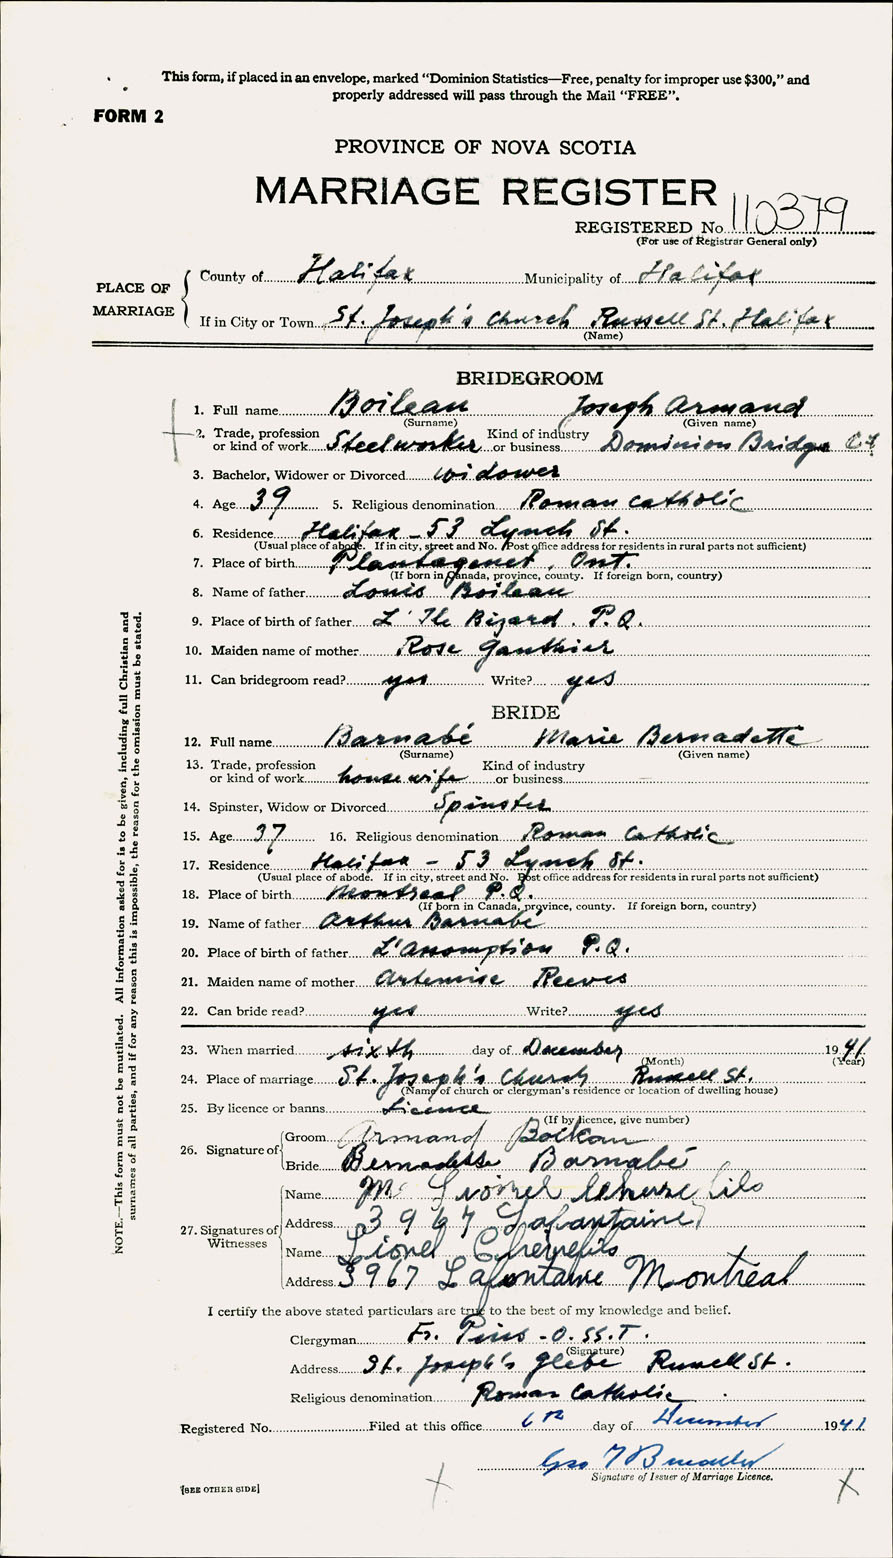 This form, if placed in an envelope, marked “Dominion Statistics—Free, penalty for improper use $300,” and
properly addressed will pass through the Mail “FREE”.
FORM 2
PROVINCE OF NOVA SCOTIA
MARRIAGE REGISTER
REGISTERED No. 110379
(For use of Registrar General only)
PLACE OF MARRIAGE
County of Halifax Municipality of Halifax
If in City or Town St. Joseph's Church Russell St. Halifax
(Name)
BRIDEGROOM
1. Full name Boileau Joseph Armand
(Surname) (Given name)
2. Trade, profession or kind of work Steelworker Kind of industry or business Dominion Bridge
3. Bachelor, Widower or Divorced widower
4. Age 39 5. Religious denomination Roman Catholic
6. Residence Halifax - 53 Lynch St.
(Usual place of abode. If in city, street and No. Post office address for residents in rural parts not sufficient)
7. Place of birth Plantagenet, Ont.
(If born in Canada, province, county. If foreign born, country)
8. Name of father Louis Boileau
9. Place of birth of father L'Ile Bizard. P.Q.
10. Maiden name of mother Rose Gauthier
11. Can bridegroom read? yes Write? yes
BRIDE
12. Full name Barnabé Marie Bernadette
(Surname) (Given name)
13. Trade, profession or kind of work housewife Kind of industry or business —
14. Spinster, Widow or Divorced Spinster
15. Age 37 16. Religious denomination Roman Catholic
17. Residence Halifax - 53 Lynch St.
(Usual place of abode. If in city, street and No. Post office address for residents in rural parts not sufficient)
18. Place of birth Montreal P.Q.
(If born in Canada, province, county. If foreign born, country)
19. Name of father Arthur Barnabé
20. Place of birth of father L'Assomption P.Q.
21. Maiden name of mother Artemise Reeves
22. Can bride read? yes Write? yes
23. When married sixth day of December 1941
(Month) (Year)
24. Place of marriage St. Joseph's Church Russell St.
(Name of church or clergyman's residence or location of dwelling house)
25. By licence or banns Licence
(If by licence, give number)
26. Signature of
Groom Armand Boileau
Bride Bernadette Barnabé
27. Signatures of Witnesses
Name
Address 3967 Lafontaine
Name Lionel
Address 3967 Lafontaine Montréal
I certify the above stated particulars are true to the best of my knowledge and belief.
Clergyman Fr. Pius - O.SS.T.
(Signature)
Address St. Joseph's Glebe Russell St.
Religious denomination Roman Catholic
Registered No. Filed at this office 6th day of December 1941
Signature of Issuer of Marriage Licence.
[SEE OTHER SIDE]
NOTE.—This form must not be mutilated. All information asked for is to be given, including full Christian and
surnames of all parties, and if for any reason this is impossible, the reason for the omission must be stated.